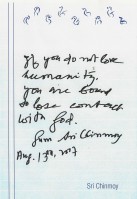 If you do not love
humanity,
you are bound
to lose contact
with God.
Sri Chinmoy
Aug. 13th, 2007
Sri Chinmoy